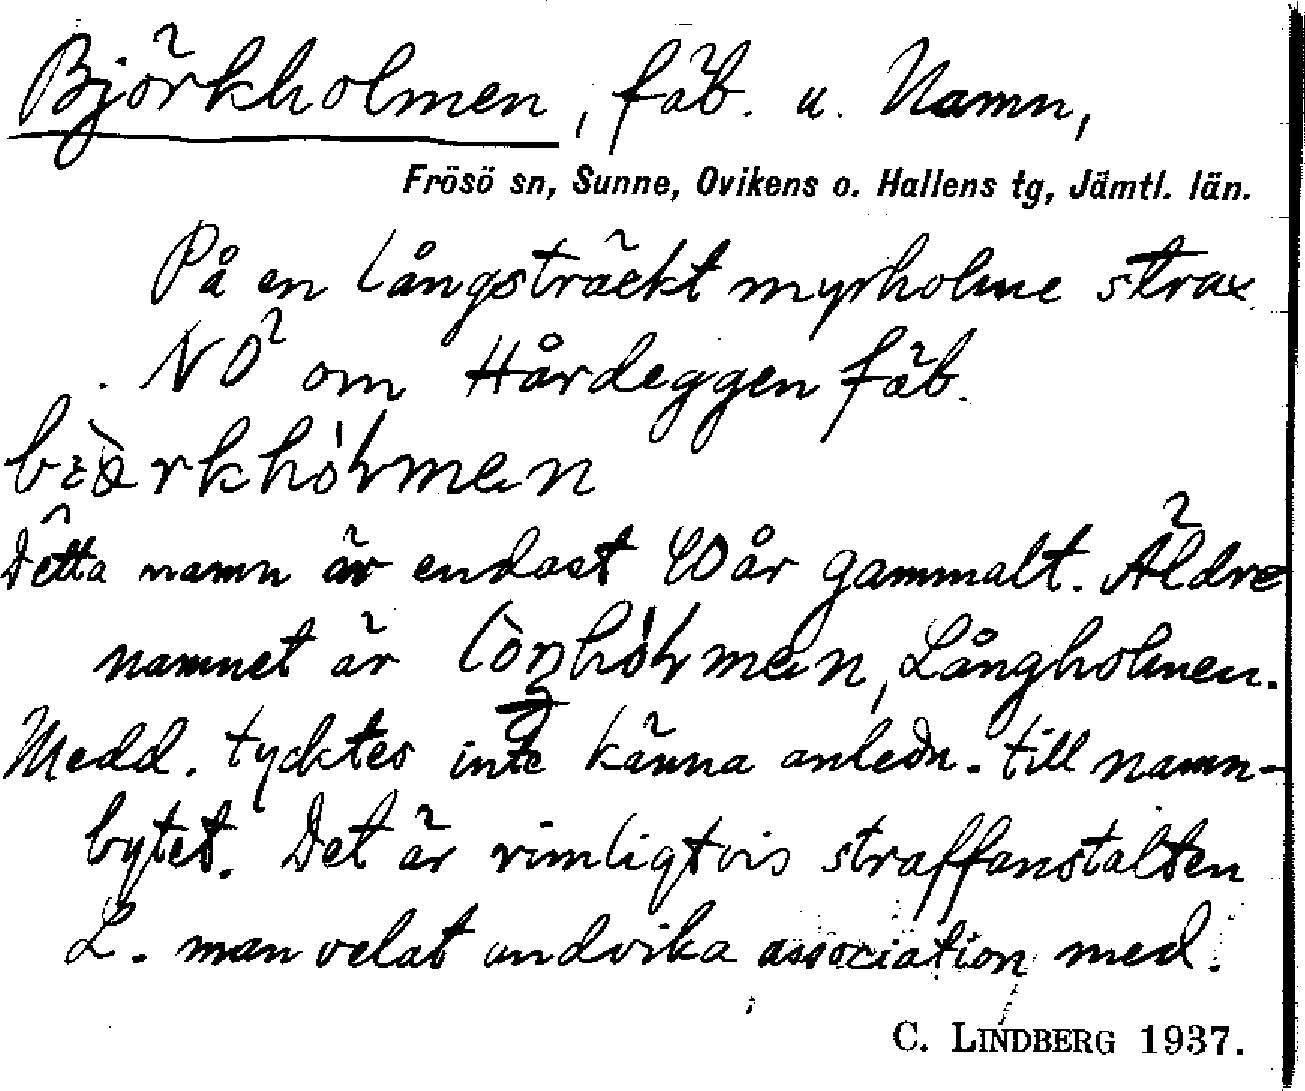 Björkholmen, fäb. u. Namn,
Frösö sn, Sunne, Ovikens o. Hallens tg, Jämtl. län.
På en långsträckt myrholme strax
NO om Hårdeggen fäb.
Detta namn är endast 40 år gammalt. Äldre
namnet är Långholmen.
Medd. tycktes inte känna anledn. till namn-
bytet. Det är rimligtvis straffanstalten
L. man velat undvika association med.
C. LINDBERG 1937.